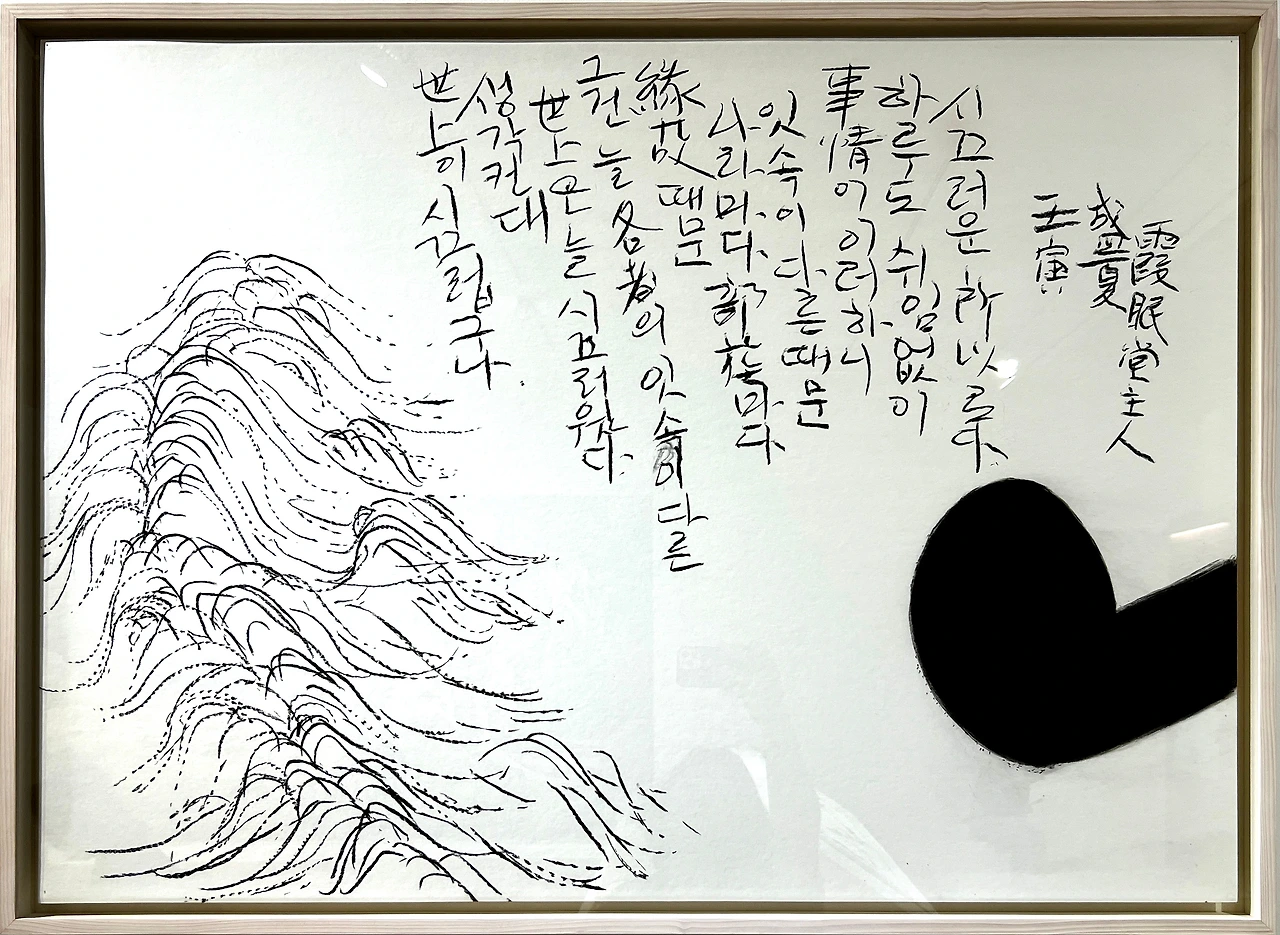 世上이 시끄럽구나.
생각컨대
世上은 늘 시끄러웠다.
그건 늘 各者의 잇속이 다른
緣故 때문
나라마다 部族마다
잇속이 다른 때문
事情이 이러하니
하루도 쉬임없이
시끄러운 所以로다.
壬寅
盛夏
霞眠堂主人